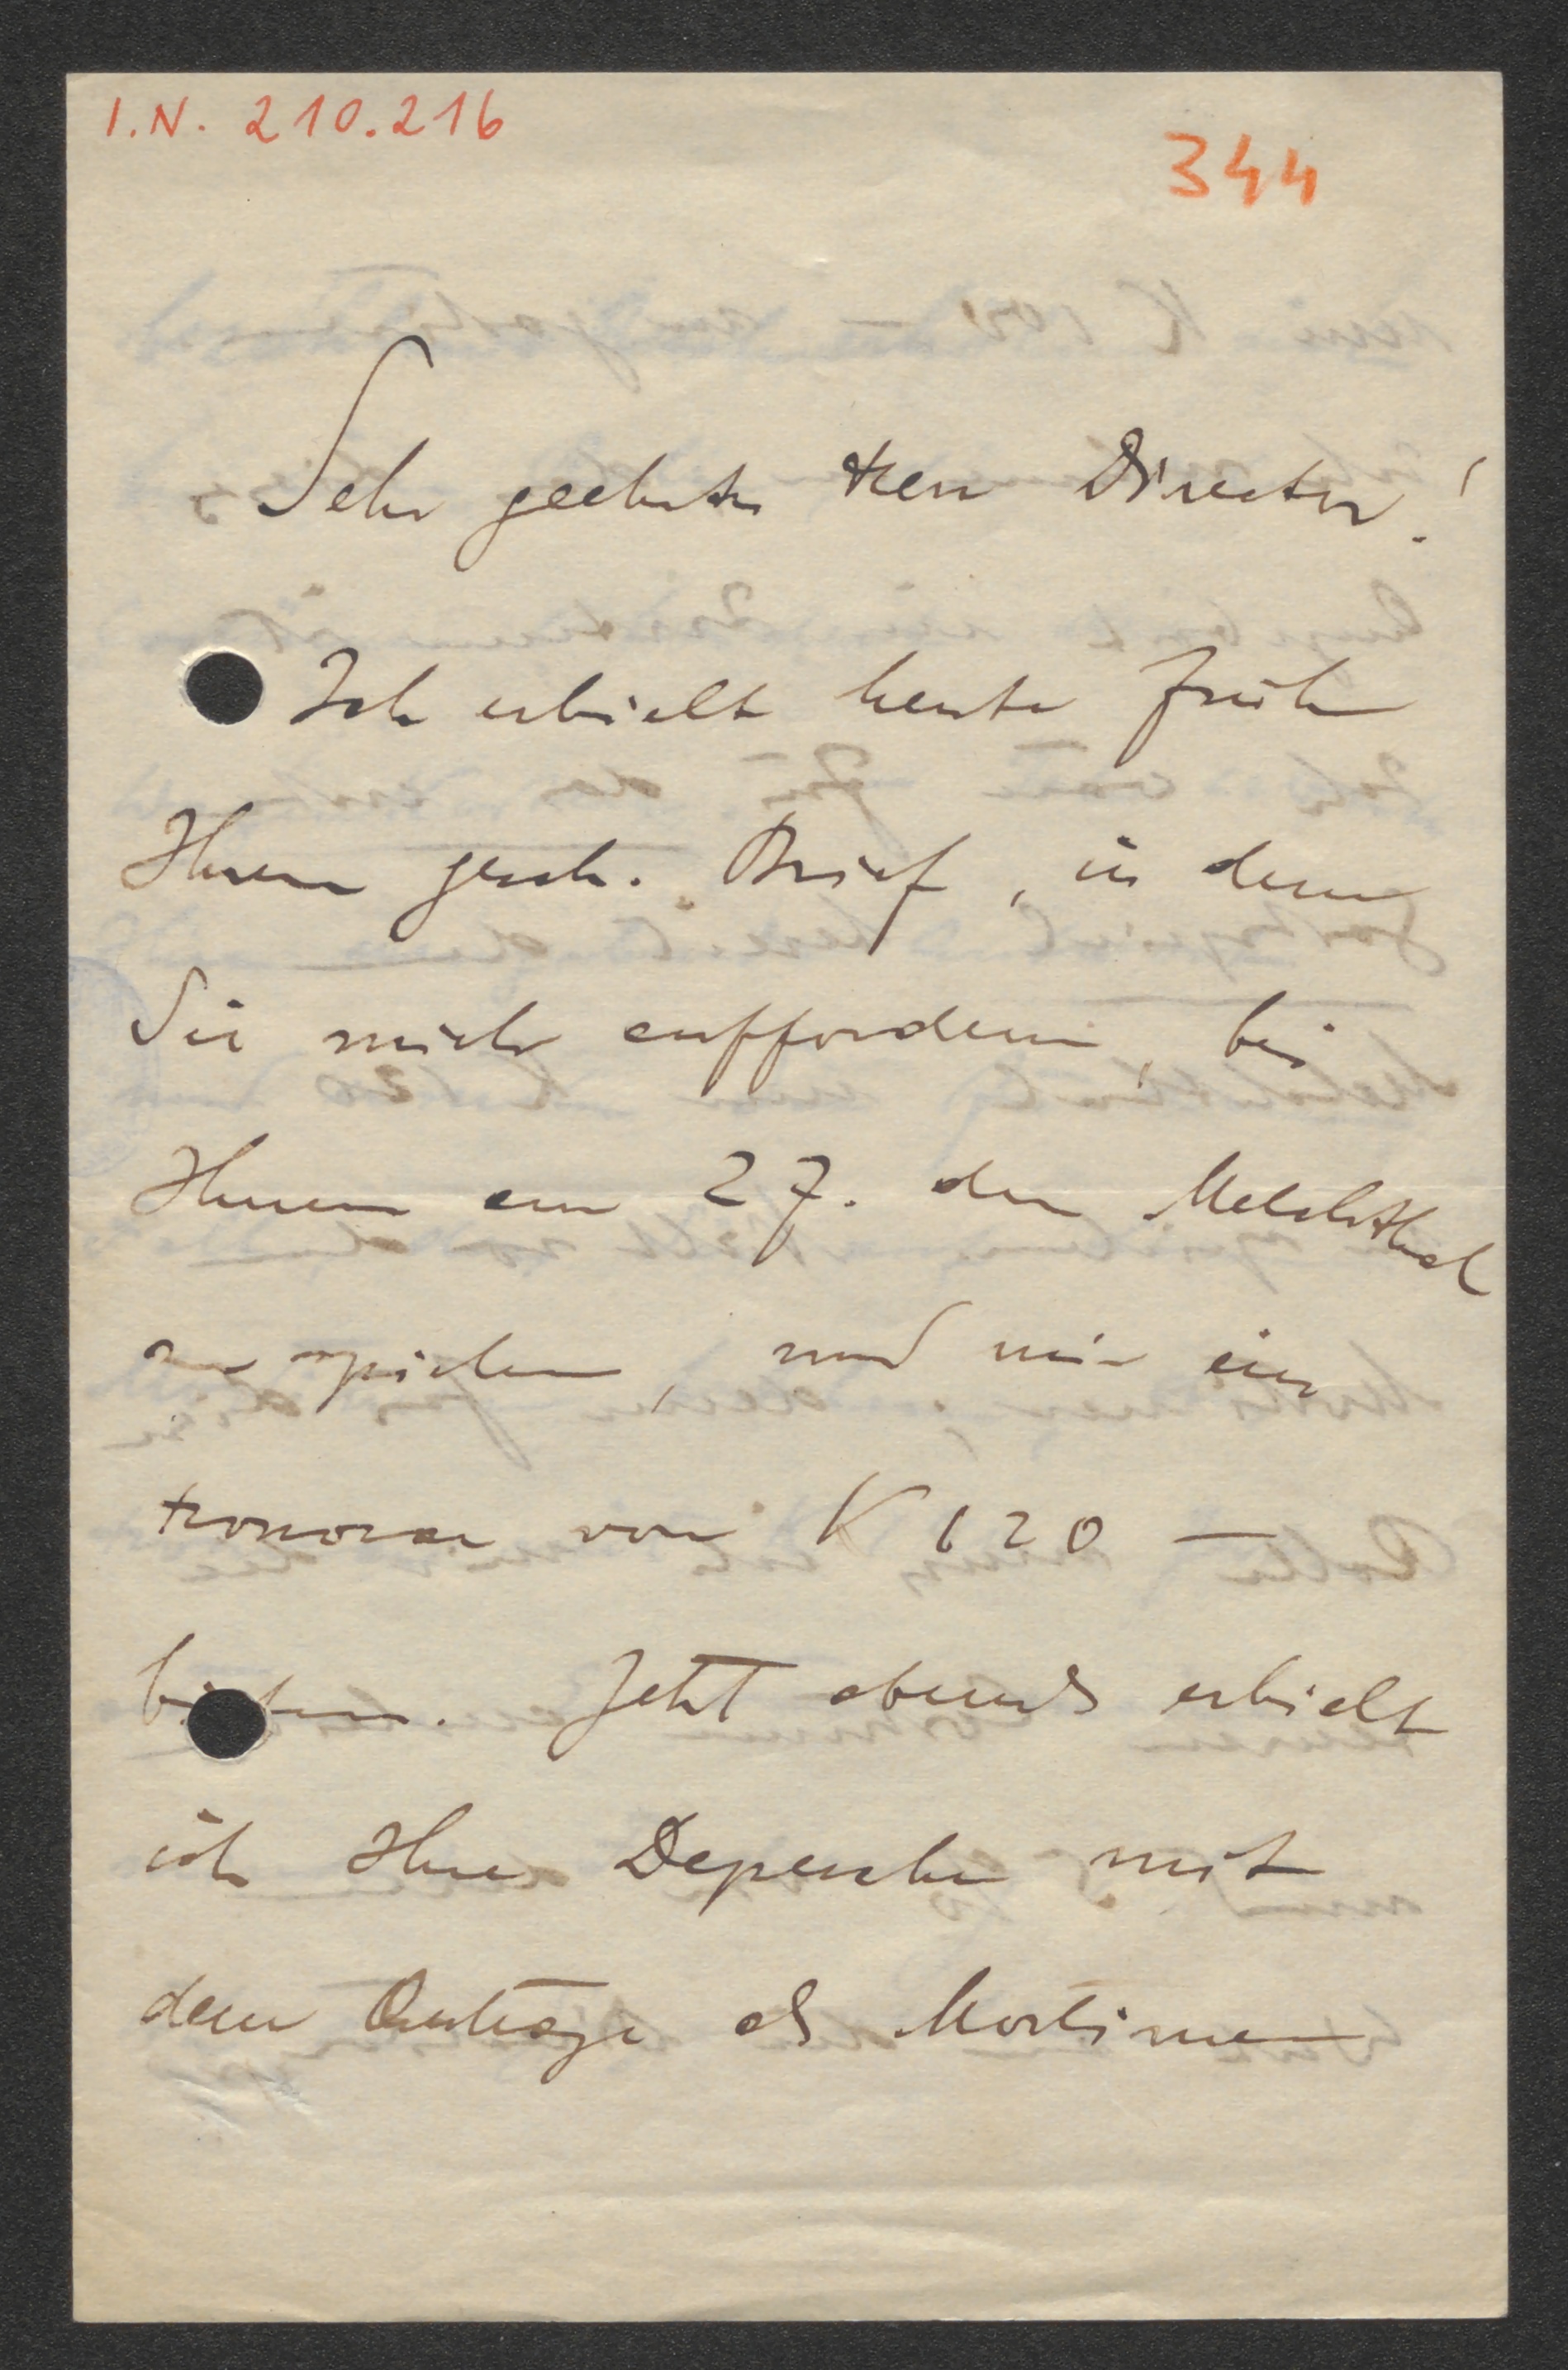 I.N. 210.216
344
Sehr geehrter Herr Director!
Ich erhielt heute früh
Ihren gesch. Brief, in dem
Sie mich auffordern, bei
Ihnen am 27. den Melchthal
zu spielen, und mir ein
Honorar von K 120 —
bieten. Jetzt abends erhielt
ich Ihre Depesche mit
dem Antrage als Mortimer